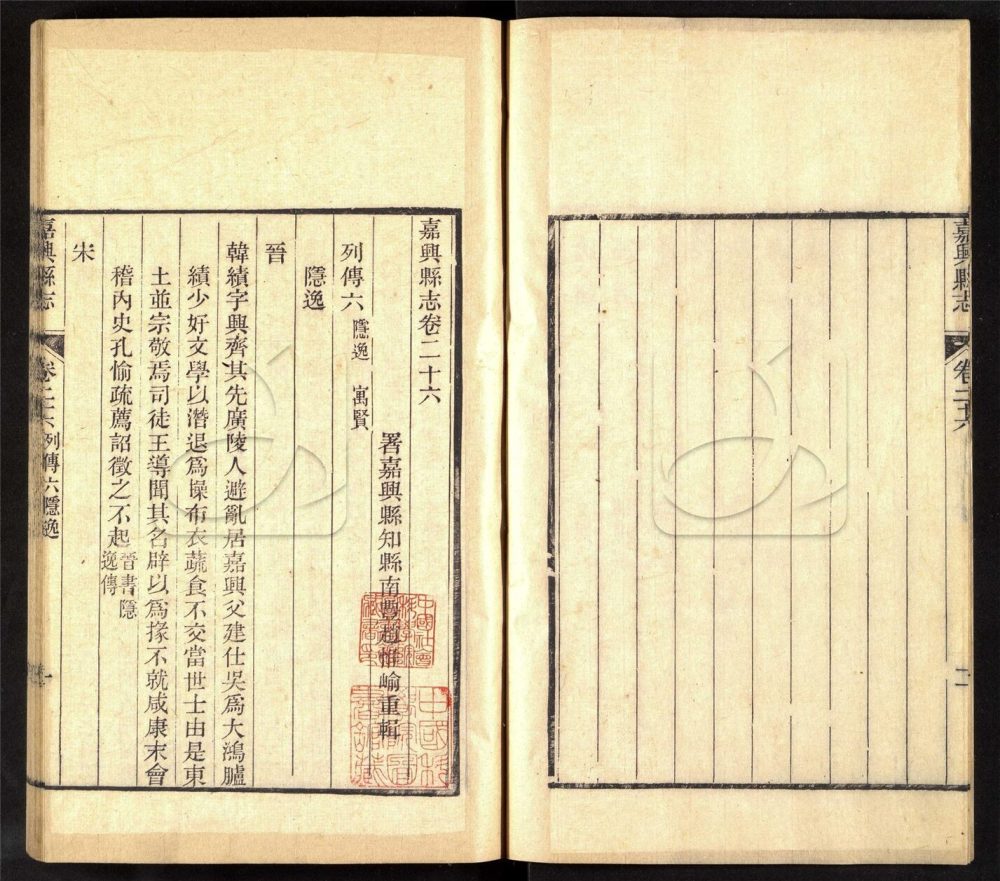 嘉興縣志
卷二十六
二
嘉興縣志卷二十六
署嘉興縣知縣南豐趙惟崳重輯
列傳六 隱逸 寓賢
隱逸
晉
韓績字興齊其先廣陵人避亂居嘉興父建仕吳爲大鴻臚
績少好文學以潛退爲操布衣蔬食不交當世士由是東
土並宗敬焉司徒王導聞其名辟以爲掾不就咸康末會
稽內史孔愉疏薦詔徵之不起晉書隱
逸傳
宋
嘉興縣志
卷二十六 列傳六 隱逸
一